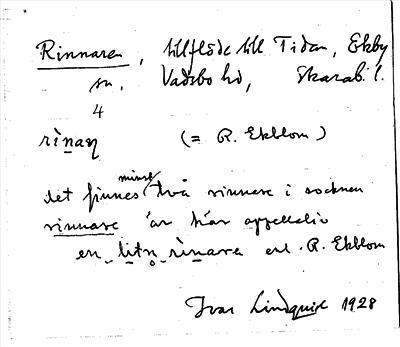 Rinnaren, tillflöde till Tidan, Ekby
sn, Vadsbo hd, Skarab. l.
4
rìnaṇ (= R. Ekblom)
det finnes minst två rinnare i socknen
rinnare är här appellativ
en litn̥ rìnara enl. R. Ekblom
Ivar Lindquist 1928